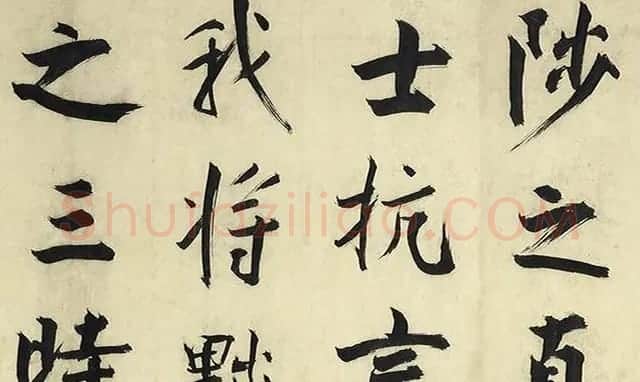 陟之直
士抗言
我将黜
之三時
Shufaziliao.COM